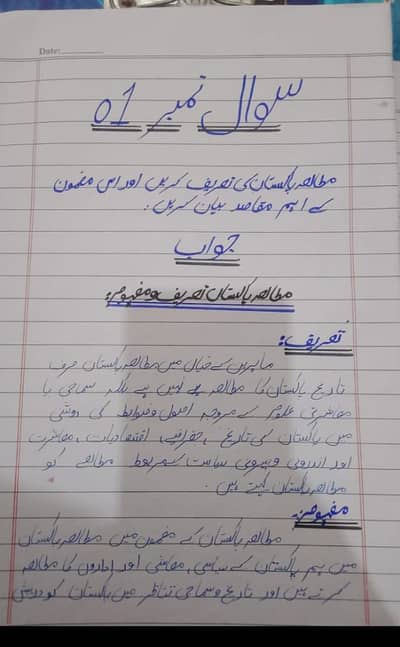 Date:
سوال نمبر 01
مطالعہ پاکستان کی تعریف کریں اور اس مضمون
کے اہم مقاصد بیان کریں۔
جواب
مطالعہ پاکستان تعریف و مفہوم:
تعریف:
ماہرین کے خیال میں مطالعہ پاکستان صرف
تاریخ پاکستان کا مطالعہ ہی نہیں ہے بلکہ سماجی یا
معاشرتی علوم کے مروجہ اصول و ضوابط کی روشنی
میں پاکستان کی تاریخ، جغرافیہ، اقتصادیات، معاشرت
اور اندرونی و بیرونی سیاست کے مربوط مطالعے کو
مطالعہ پاکستان کہتے ہیں۔
مفہوم:
مطالعہ پاکستان کے مضمون میں مطالعہ پاکستان
میں ہم پاکستان کے سیاسی، معاشی اور اداروں کا مطالعہ
کرتے ہیں اور تاریخ و سماجی تناظر میں پاکستان کو درپیش